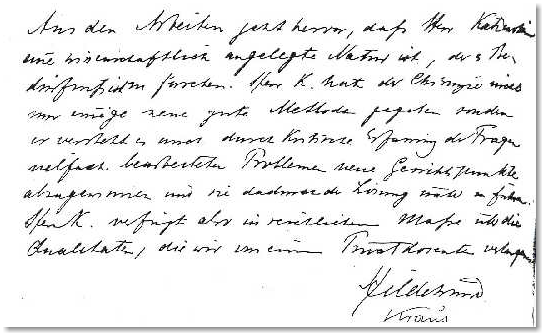 Aus den Arbeiten geht hervor, daß Herr Katzenstein
eine wissenschaftlich angelegte Natur ist, der es Be-
dürfnis ist zu forschen. Herr K. hat der Chirurgie
nur einige neue gute Methoden gegeben sondern
er versteht es durch Kritische Erfassung der Fragen
vielfach bearbeiteten Problemen neue Gesichtspunkte
abzugewinnen und sie dadurch der Lösung näher zu führen.
Herr K. verfügt also in reichlichem Maße über die
Qualitäten, die wir von einem Privatdozenten verlangen
Hildebrand
Kraus